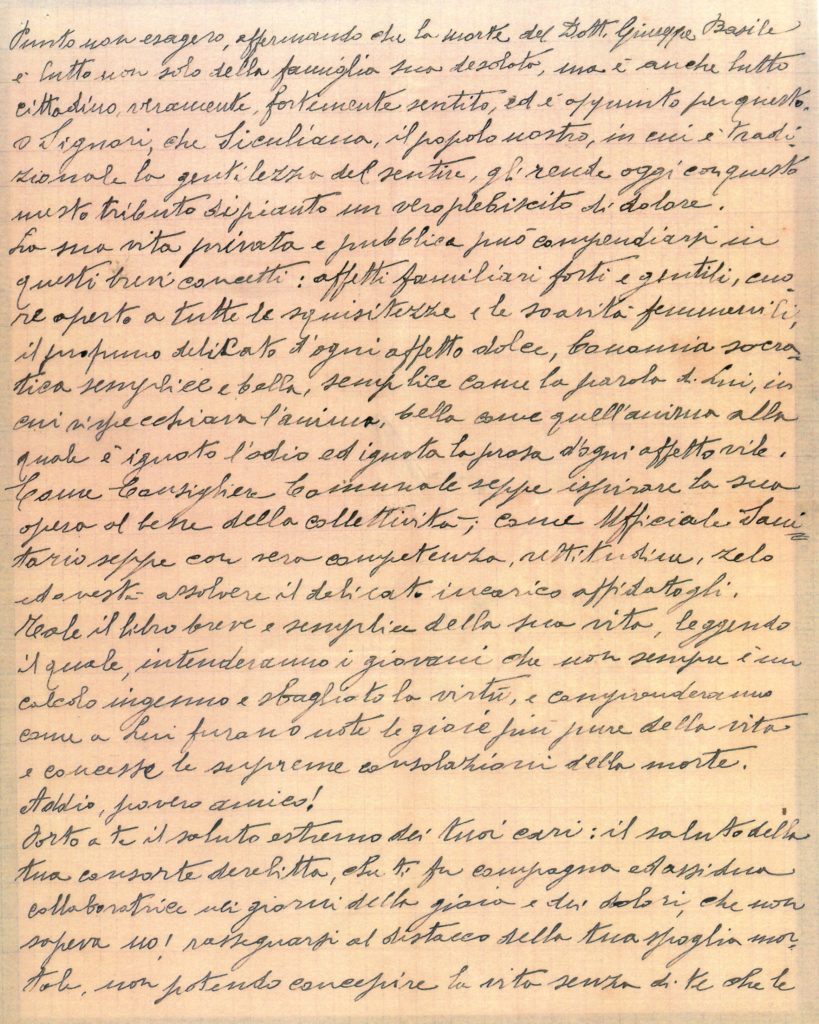 Punto non esagero, affermando che la morte del Dott. Giuseppe Basile
è lutto non solo della famiglia sua desolata, ma è anche lutto
cittadino, veramente, fortemente sentito, ed è appunto per questo,
o Signori, che Siculiana, il popolo nostro, in cui è tradi-
zionale la gentilezza del sentire, gli rende oggi con questo
mesto tributo di pianto un vero plebiscito di dolore.
La sua vita privata e pubblica può compendiarsi in
questi brevi concetti: affetti familiari forti e gentili, cuo-
re aperto a tutte le squisitezze e le soavità femminili,
il profumo delicato d'ogni affetto dolce, bonomia socra-
tica semplice e bella, semplice come la parola di Lui, in
cui rispecchiava l'anima, bella come quell'anima alla
quale è ignoto l'odio ed ignota la prosa d'ogni affetto vile.
Come Consigliere Comunale seppe ispirare la sua
opera al bene della collettività; come Ufficiale Sani=
tario seppe con vera competenza, rettitudine, zelo
ed onestà assolvere il delicato incarico affidatogli.
Tale il libro breve e semplice della sua vita, leggendo
il quale, intenderanno i giovani che non sempre è un
calcolo ingenuo e sbagliato la virtù, e comprenderanno
come a Lui furano note le gioie più pure della vita
e concesse le supreme consolazioni della morte.
Addio, povero amico!
Porto a te il saluto estremo dei tuoi cari: il saluto della
tua consorte derelitta, che ti fu compagna ed assidua
collaboratrice nei giorni della gioia e dei dolori, che non
sapeva no! rassegnarsi al distacco della tua spoglia mor-
tale, non potendo concepire la vita senza di te che le